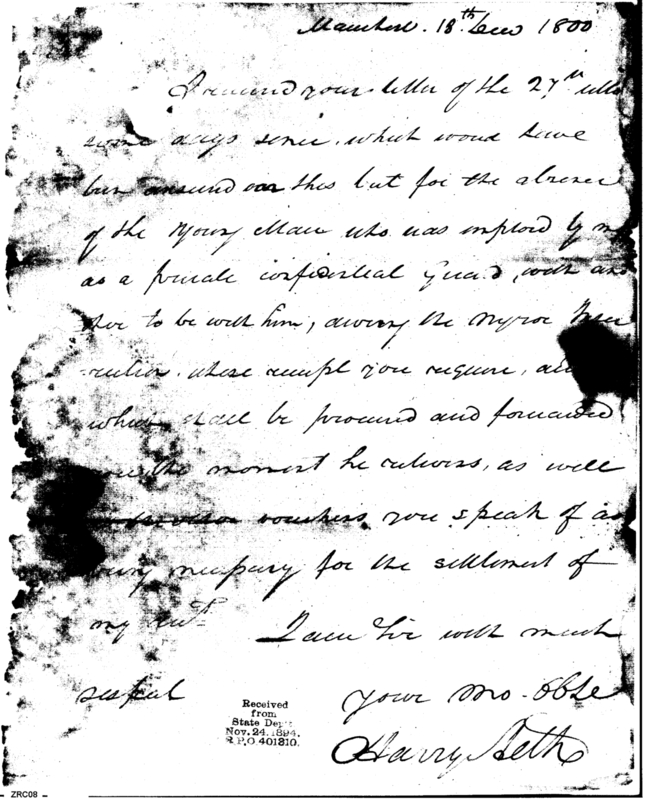 Manchest. 18th Decr 1800
I received your letter of the 27th ulto
some days since, which woud have
been answerd ere this but for the absence
of the Young Man who was employd by me
as a private confidential Guard, with
to be with him, during the Negroe Insur
rection, whose receipt you require, and
which shall be procured and forwarded
the moment he returns, as well
vouchers you speak of as
being necessary for the settlement of
my Acct. I am Sir with much
respect your Mo. Obbe
Harry Heth
Received
from
State Dep't
Nov. 24. 1894.
R.P.O. 401310.
ZRC08